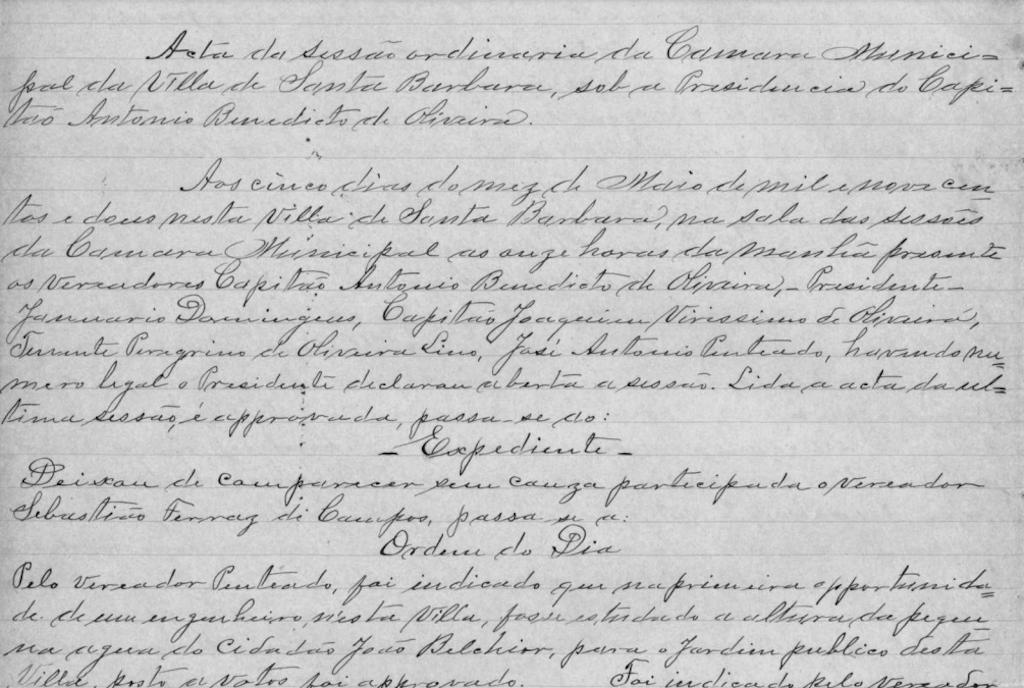 Acta da sessão ordinaria da Camara Munici=
pal da Villa de Santa Barbara, sob a Presidencia do Capi=
tão Antonio Benedicto de Oliveira.
Aos cinco dias do mez de Maio de mil e nove cen
tos e dous nesta Villa de Santa Barbara, na sala das sessões
da Camara Municipal as onze horas da manhã presente
os vereadores Capitão Antonio Benedicto de Oliveira, – Presidente –
Januario Domingues, Capitão Joaquim Virissimo de Oliveira,
Tenente Peregrino de Oliveira Lino, José Antonio Penteado, havendo nu=
mero legal o Presidente declarou aberta a sessão. Lida a acta da ul=
tima sessão, é approvada, passa se ao:
– Expediente –
Deixou de comparecer sem cauza participada o vereador
Sebastião Ferraz de Campos, passa se a:
Ordem do Dia
Pelo vereador Penteado, foi indicado que na primeira opportunida=
de de um engenheiro nesta Villa, fosse estudado a altura da peque
na agua do cidadão João Belchior, para o Jardim publico desta
Villa, posto a votos foi approvado. Foi indicado pelo vereador